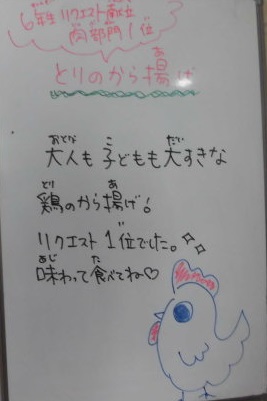 6年生リクエスト献立
肉部門1位
とりのから揚げ
大人も子どもも大すきな
鶏のから揚げ!
リクエスト1位でした。
味わって食べてね♡